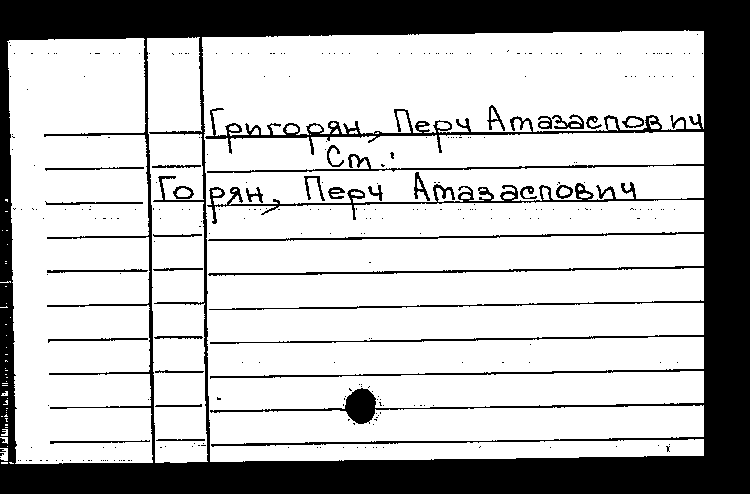 Григорян, Перч Амазаспович
Ст.:
Горян, Перч Амазаспович